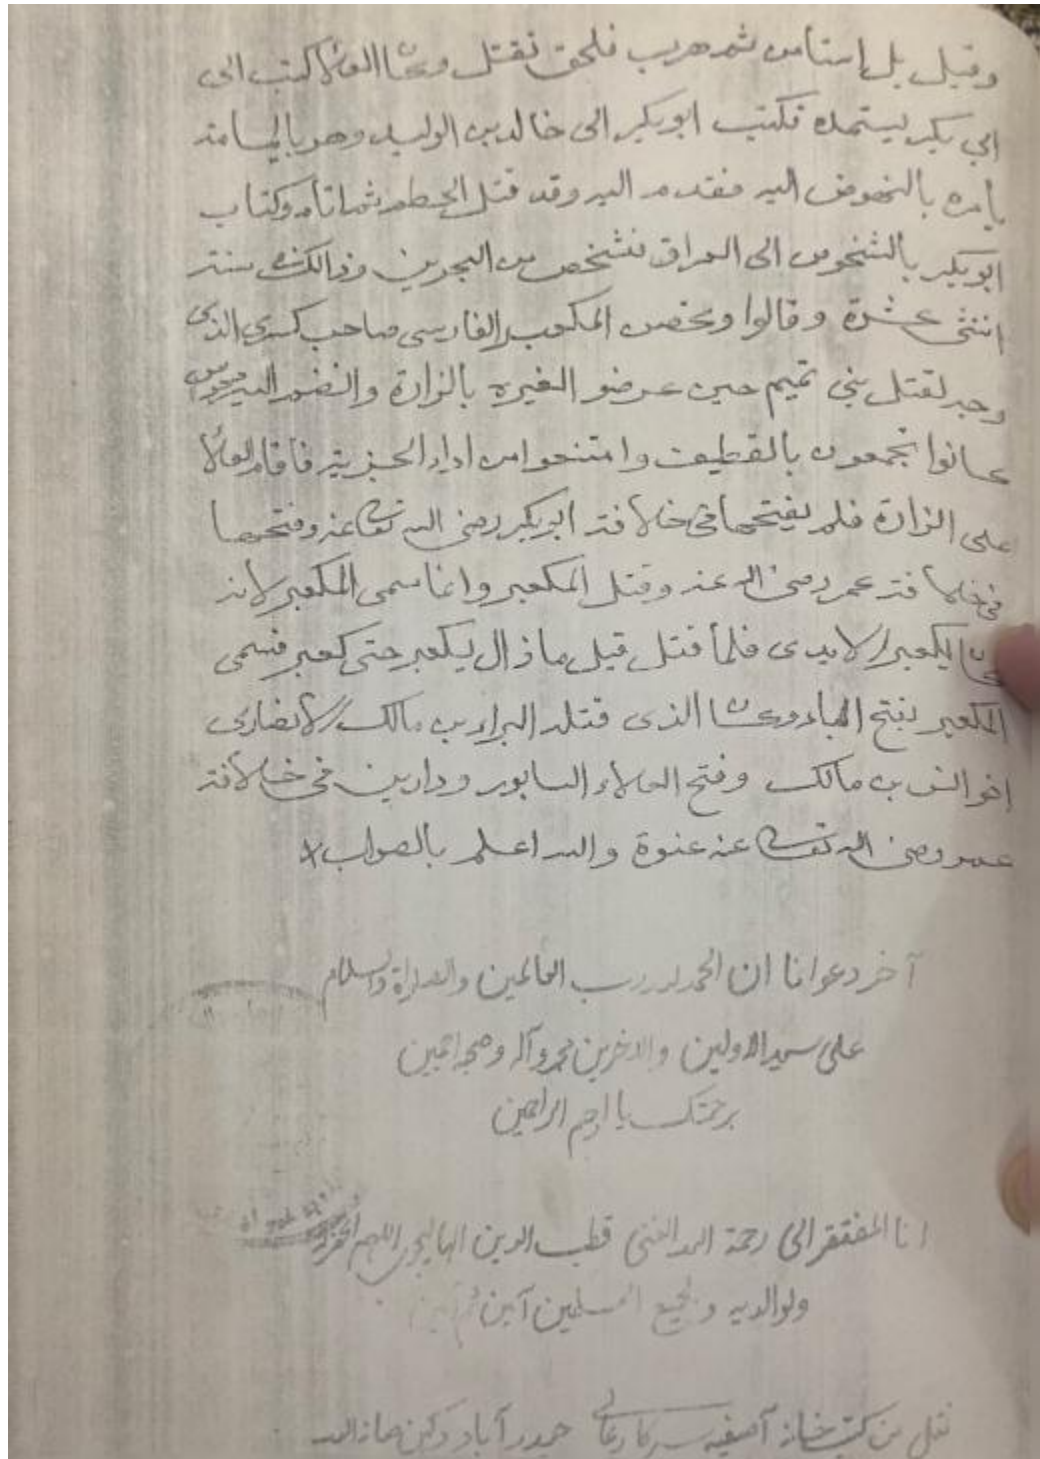 وقيل بل إستأمن ثم هرب فلحق فقتل وكان العلاء كتب الى
ابي بكر يستمده فكتب ابو بكر الى خالد بن الوليد وهو باليمامة
يامره بالنهوض اليه فقدم اليه وقد قتل الحطم ثم اتاه وكتاب
ابو بكر بالشخوص الى العراق فشخص من البحرين وذالك في سنة
اثنتى عشرة وقالوا وتحصن المكعبر الفارسى صاحب كسرى الذى
وجه لقتل بني تميم حين عرضو العيره بالزارة وانضم اليه مجوس
كانوا تجمعون بالقطيف وامتنعوا من اداء الجزية فاقام العلاء
على الزارة فلم يفتحها في خلافة ابو بكر رضى الله تعالى عنه وفتحها
في خلافة عمر رضى الله عنه وقتل المكعبر وانما سمى المكعبر لانه
كان يكعبر الايدى فلما قتل قيل ما زال يكعبر حتى كعبر فسمى
المكعبر بفتح الباء وكان الذى قتله البراء بن مالك الانصارى
اخو انس بن مالك وفتح العلاء السابور ودارين في خلافة
عمر رضى الله تعالى عنه عنوة والله اعلم بالصواب
آخر دعوانا ان الحمد لله رب العالمين والصلاة والسلام
على سيد الاولين والاخرين محمد وآله وصحبه اجمعين
برحمتك يا ارحم الراحمين
انا المفتقر الى رحمة الله الغنى قطب الدين اللهم اغفر له
ولوالديه ولجميع المسلمين آمين ثم آمين
نقل من كتب خانه آصفيه سركار عالى حيدر آباد دكن